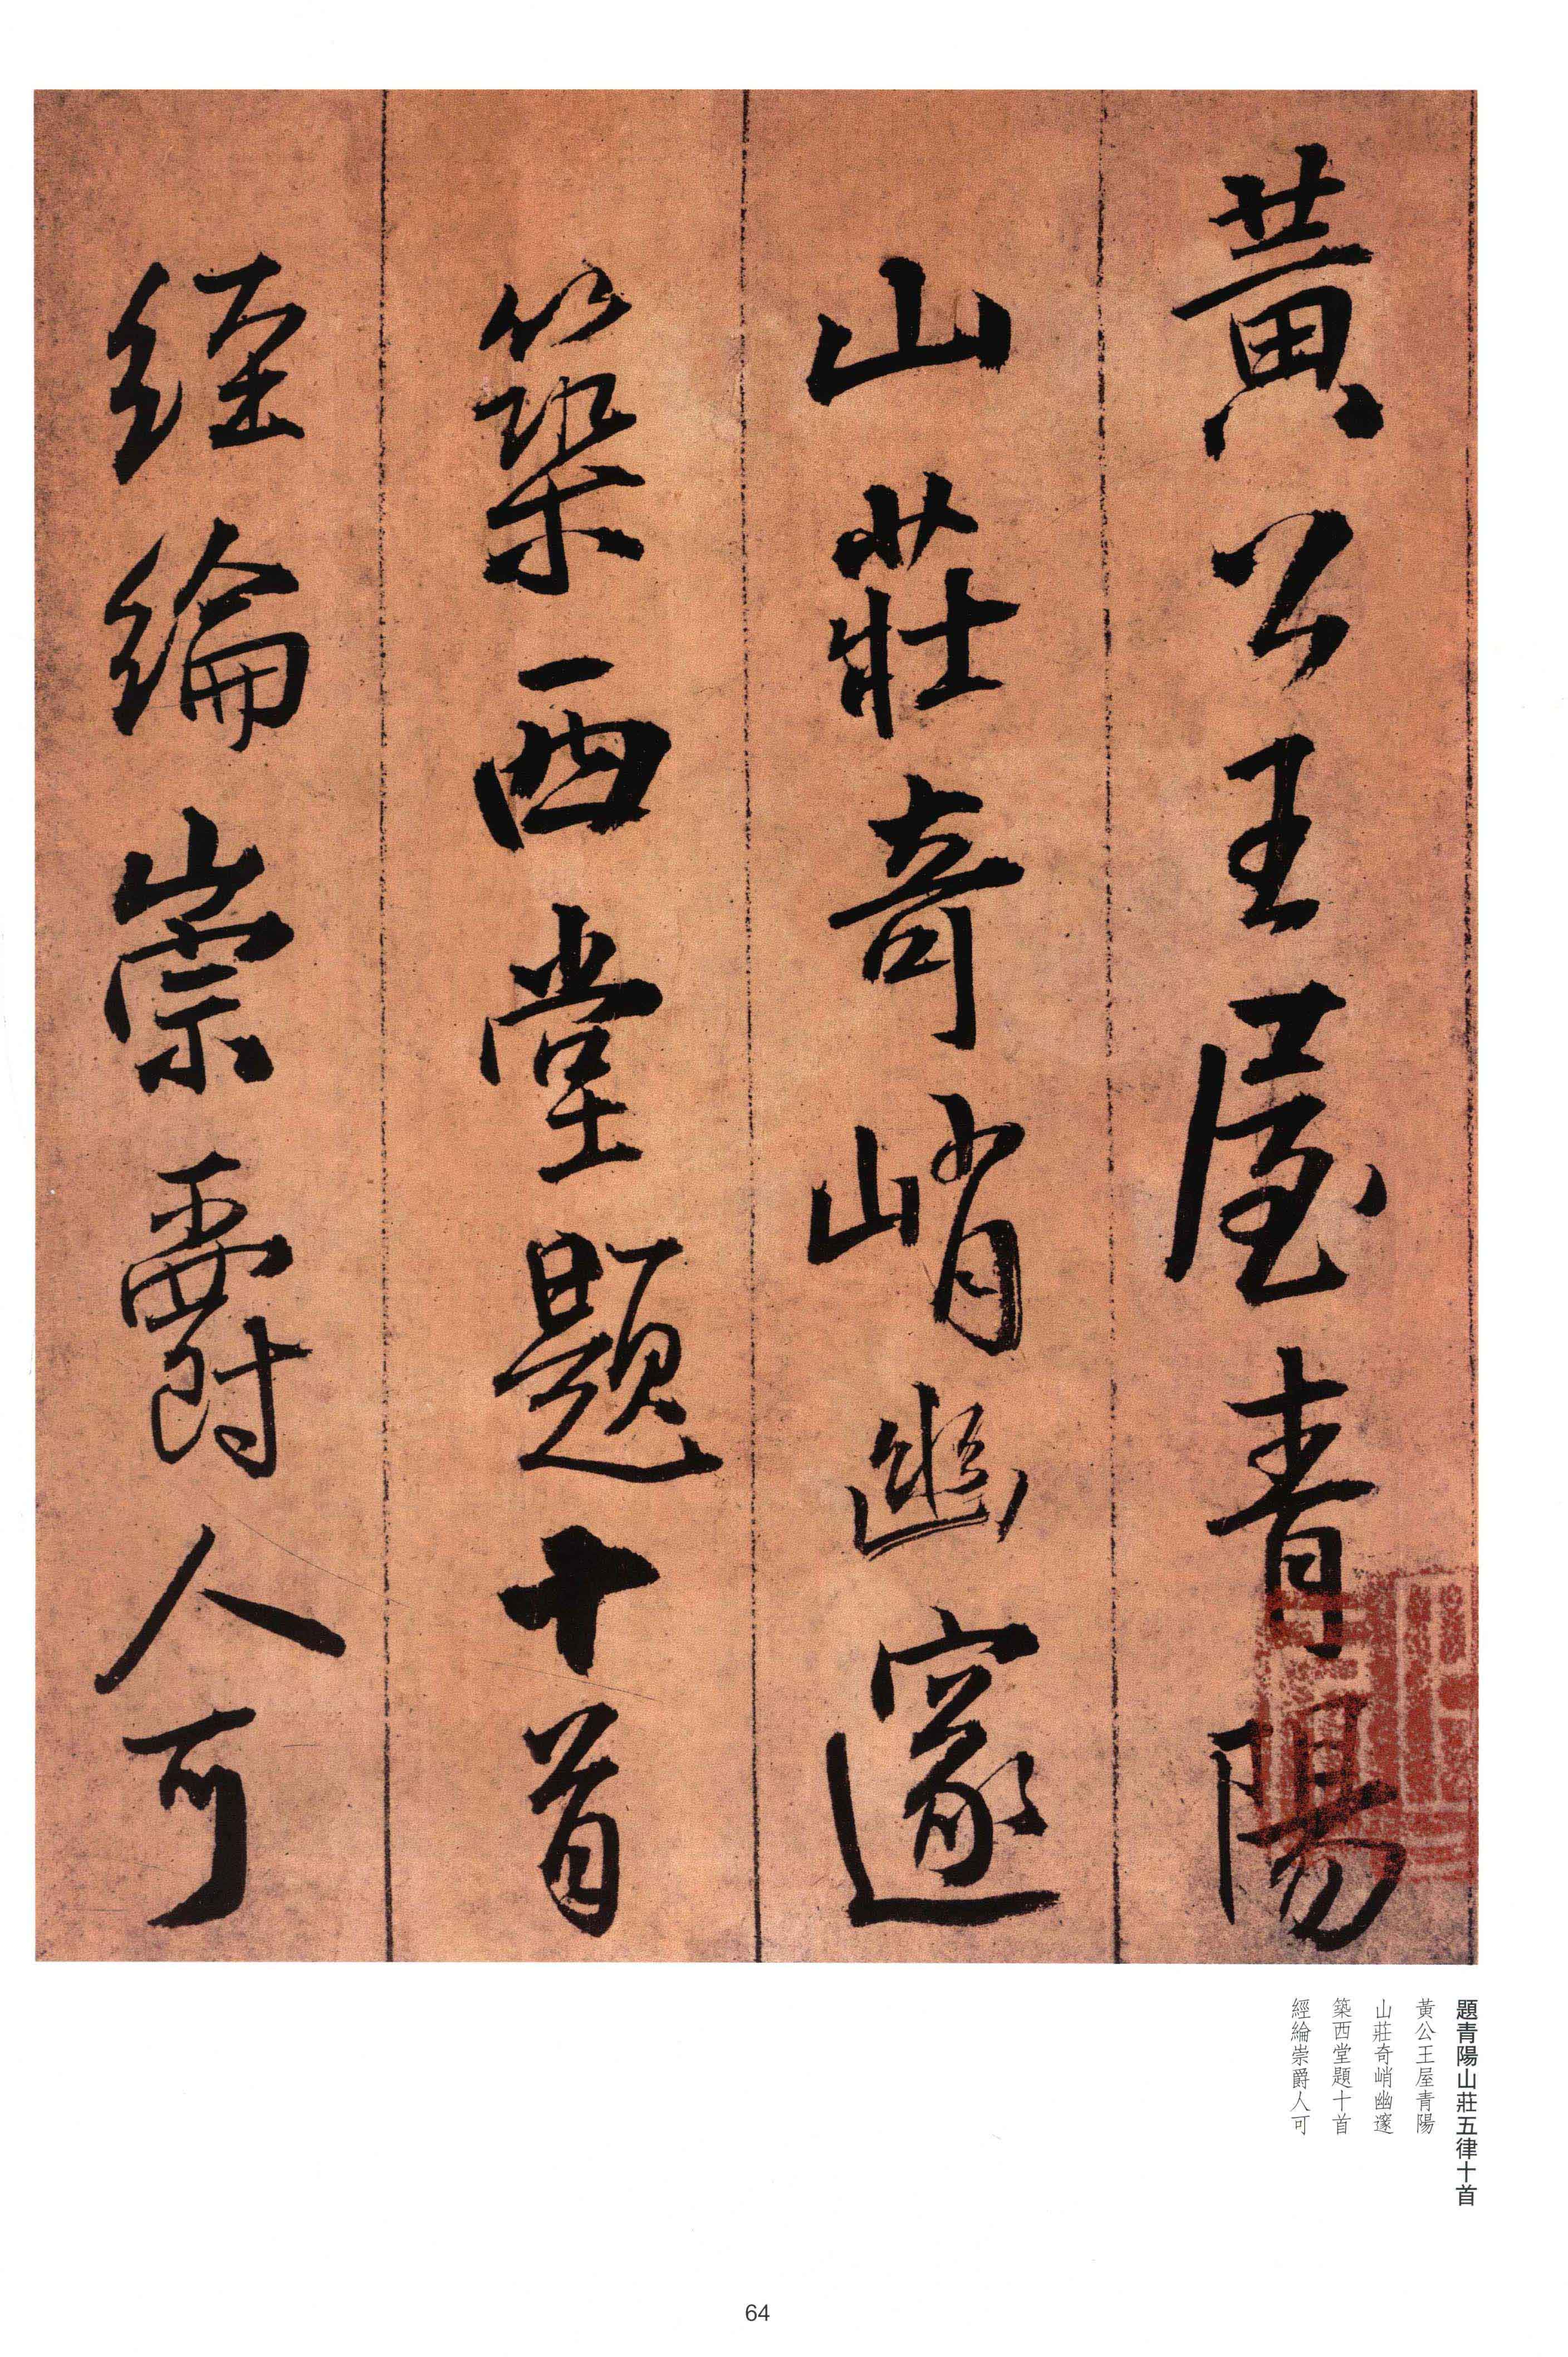 黃公王屋青陽
山莊奇峭幽邃
築西堂題十首
經綸崇爵人可
題青陽山莊五律十首
黃公王屋青陽
山莊奇峭幽邃
築西堂題十首
經綸崇爵人可
64